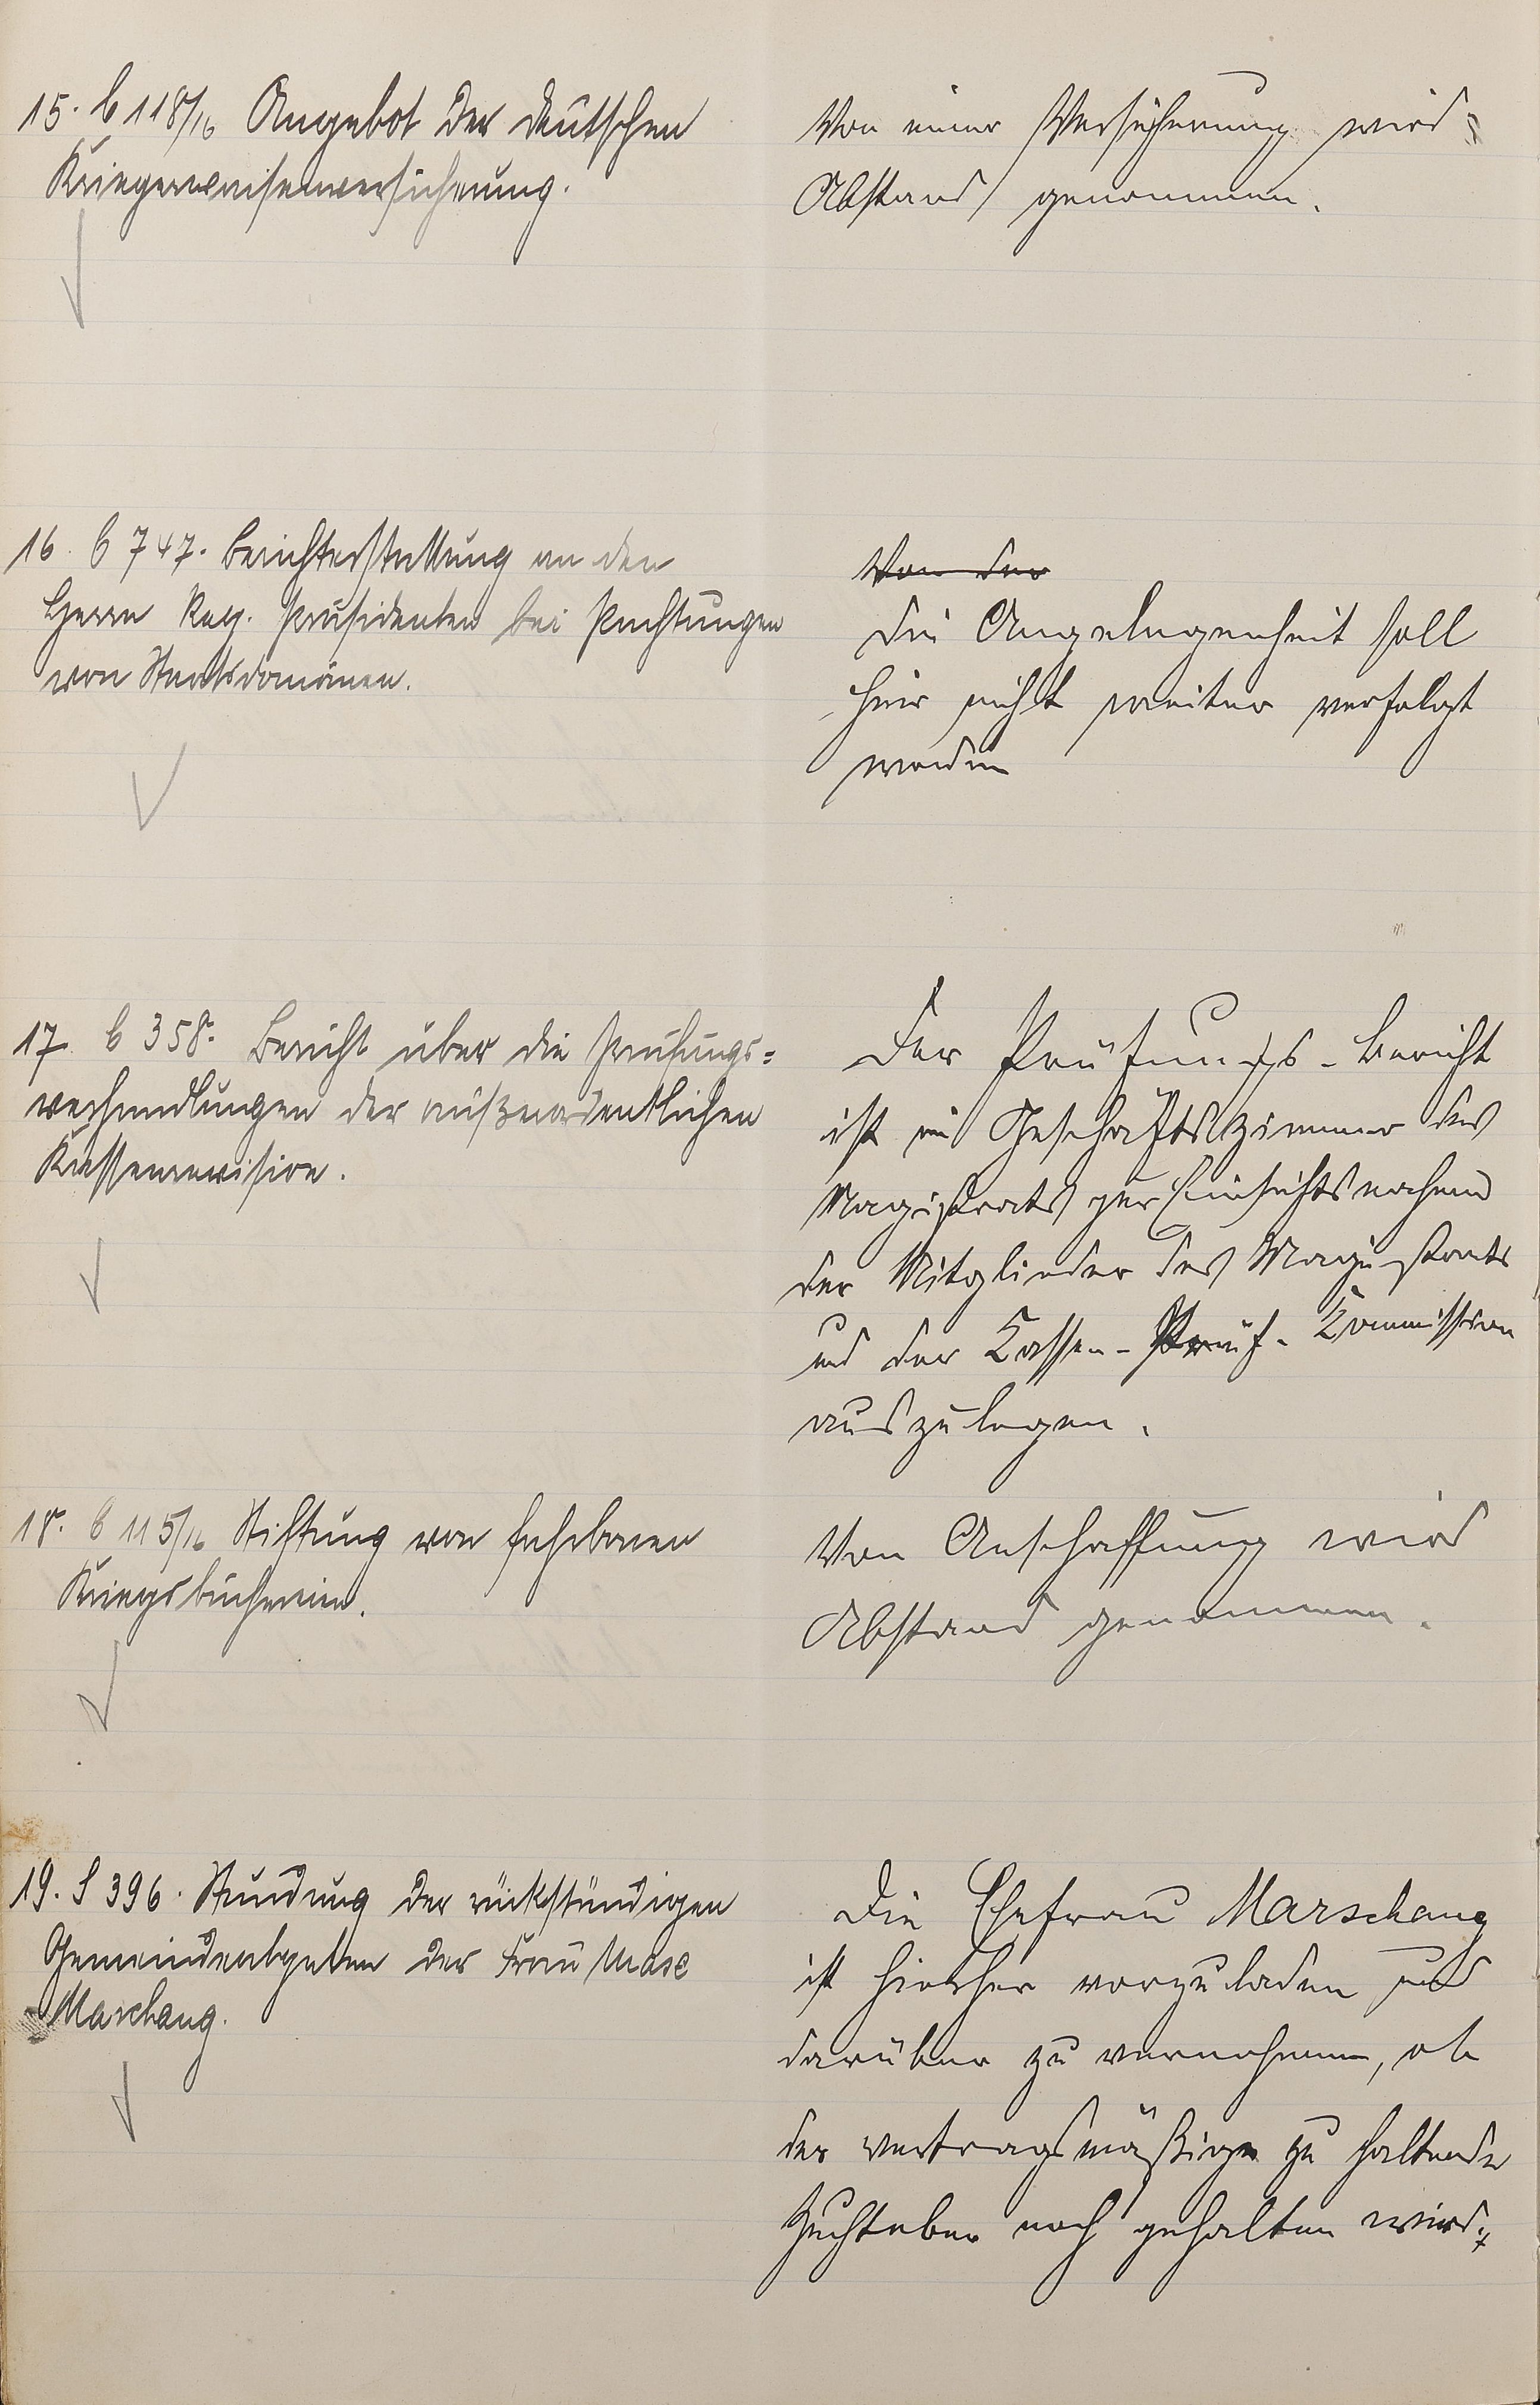 15. b 118/16 Angebot der deutschen
Kriegerwaisenversicherung.
Von einer Versicherung wird
Abstand genommen.
16. b 747. Berichterstattung an den
Herrn Reg. Präsidenten bei Pachtungen
von Staatsdomänen.
Von der
Die Angelegenheit soll
hier nicht weiter verfolgt
werden
17. b 358. Bericht über die Prüfungs=
verhandlungen der außerordentlichen
Kassenrevision.
Der Prüfungs-Bericht
ist im Geschäftszimmer des
Magistrats zur Einsichtsnahme
der Mitglieder des Magistrats
und der Kassen-Prüf.-Kommission
auszulegen.
18. b 115/16 Stiftung von fahrbaren
Kriegsbüchereien.
Von Anschaffung wird
Abstand genommen.
19. S 396. Stundung der rückständigen
Gemeindeabgaben der Frau
Marschang.
Die Ehefrau Marschang
ist hierher vorzuladen und
darüber zu vernehmen, ob
der vertragsmäßig zu haltende
Zuchteber noch gehalten wird.